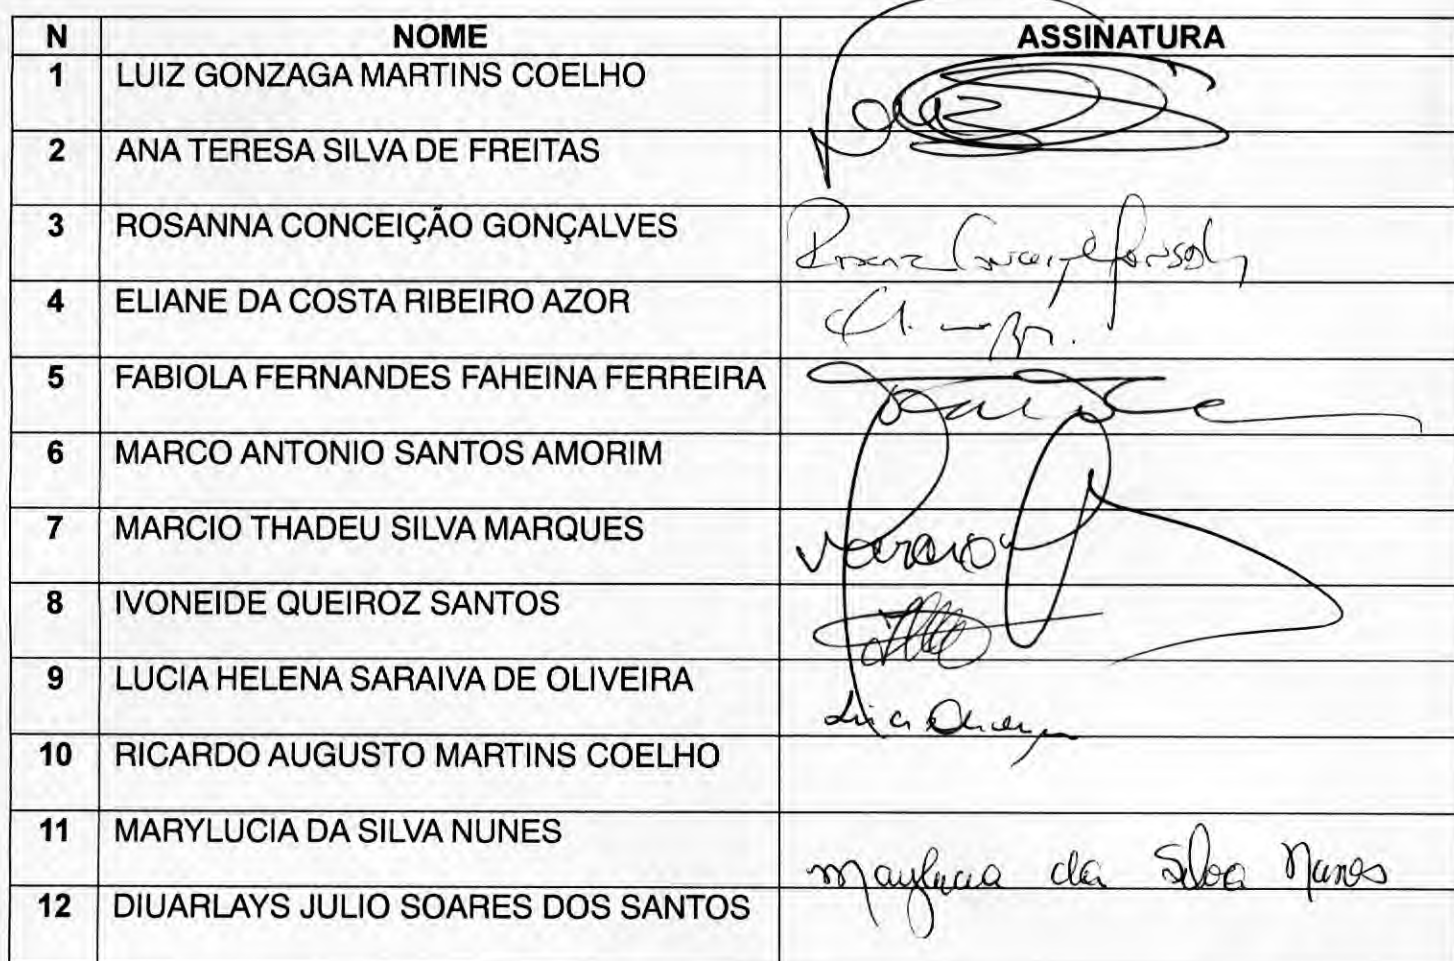 N NOME ASSINATURA
1 LUIZ GONZAGA MARTINS COELHO Luiz
2 ANA TERESA SILVA DE FREITAS
3 ROSANNA CONCEIÇÃO GONÇALVES
4 ELIANE DA COSTA RIBEIRO AZOR
5 FABIOLA FERNANDES FAHEINA FERREIRA
6 MARCO ANTONIO SANTOS AMORIM
7 MARCIO THADEU SILVA MARQUES
8 IVONEIDE QUEIROZ SANTOS
9 LUCIA HELENA SARAIVA DE OLIVEIRA
10 RICARDO AUGUSTO MARTINS COELHO
11 MARYLUCIA DA SILVA NUNES Marylucia da Silva Nunes
12 DIUARLAYS JULIO SOARES DOS SANTOS